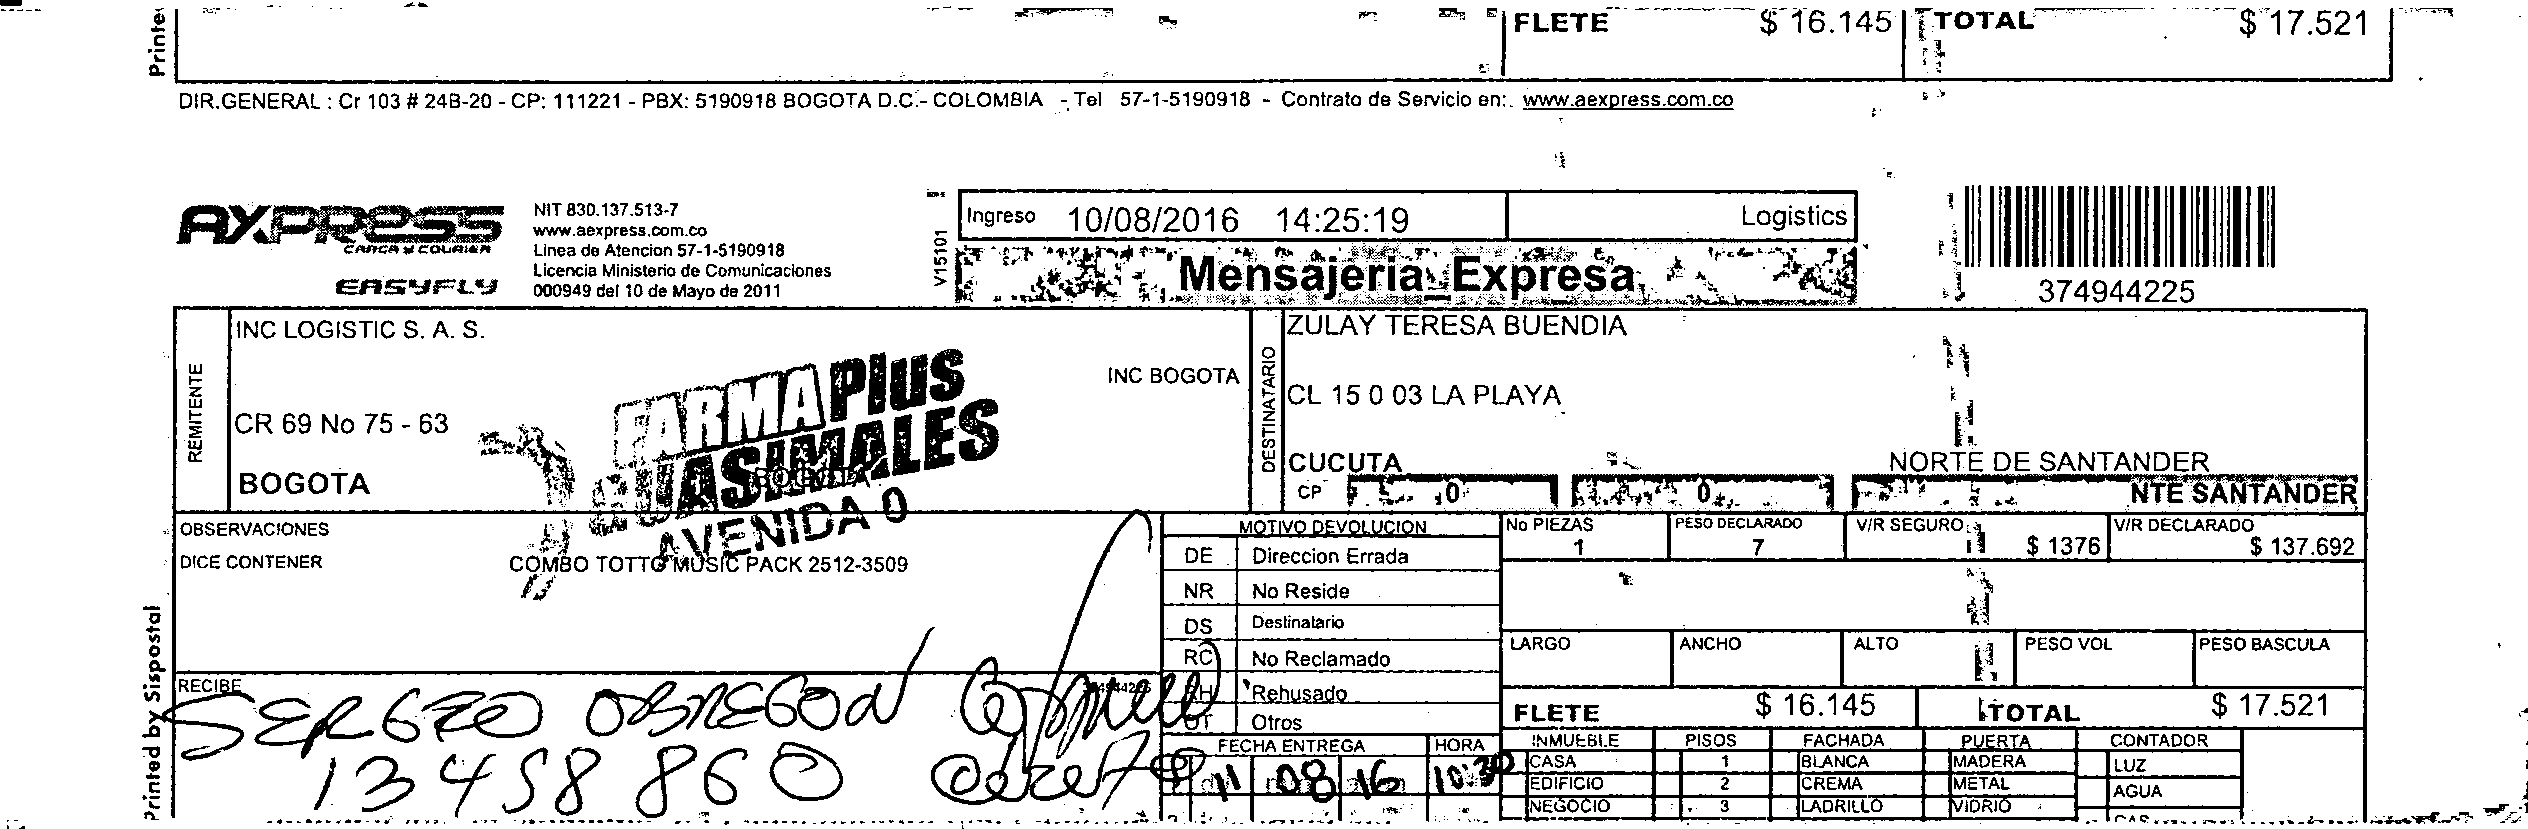 FLETE $ 16.145 TOTAL $ 17.521
DIR.GENERAL : Cr 103 # 24B-20 - CP: 111221 - PBX: 5190918 BOGOTA D.C.- COLOMBIA - Tel 57-1-5190918 - Contrato de Servicio en: www.aexpress.com.co
AXPRESS
CARGA Y COURIER
EASYFLY
NIT 830.137.513-7
www.aexpress.com.co
Linea de Atencion 57-1-5190918
Licencia Ministerio de Comunicaciones
000949 del 10 de Mayo de 2011
V15101
Ingreso 10/08/2016 14:25:19 Logistics
Mensajeria Expresa
374944225
REMITENTE
INC LOGISTIC S. A. S.
INC BOGOTA
CR 69 No 75 - 63
BOGOTA
FARMA Plus
GUASIMALES
AVENIDA 0
DESTINATARIO
ZULAY TERESA BUENDIA
CL 15 0 03 LA PLAYA
CUCUTA NORTE DE SANTANDER
CP 0 0 NTE SANTANDER
OBSERVACIONES
DICE CONTENER COMBO TOTTO MUSIC PACK 2512-3509
MOTIVO DEVOLUCION
DE Direccion Errada
NR No Reside
DS Destinatario
RC No Reclamado
RH Rehusado
OT Otros
No PIEZAS 1
PESO DECLARADO 7
V/R SEGURO $ 1376
V/R DECLARADO $ 137.692
LARGO ANCHO ALTO PESO VOL PESO BASCULA
FLETE $ 16.145 TOTAL $ 17.521
RECIBE
SERGIO OBREGON
13458860
FECHA ENTREGA HORA
11 08 16 10:30
INMUEBLE PISOS FACHADA PUERTA CONTADOR
CASA 1 BLANCA MADERA LUZ
EDIFICIO 2 CREMA METAL AGUA
NEGOCIO 3 LADRILLO VIDRIO
Printed by Sispostal